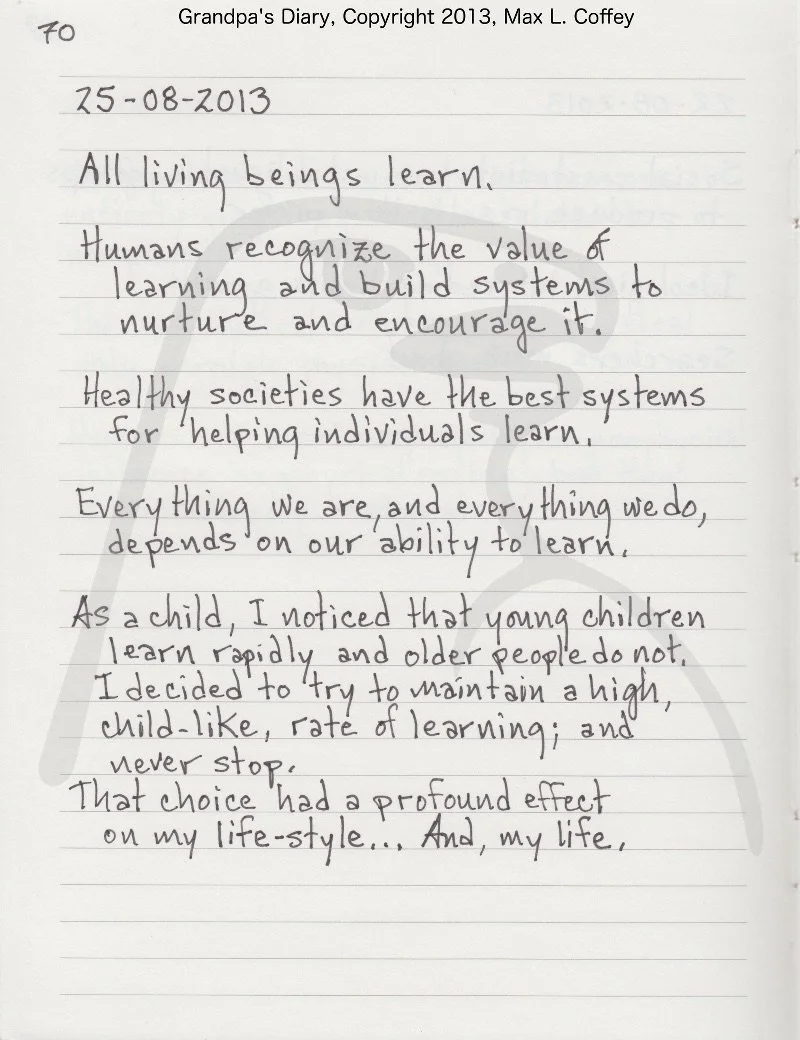 Grandpa's Diary, Copyright 2013, Max L. Coffey
70
25-08-2013
All living beings learn.
Humans recognize the value of
learning and build systems to
nurture and encourage it.
Healthy societies have the best systems
for helping individuals learn.
Everything we are, and everything we do,
depends on our ability to learn.
As a child, I noticed that young children
learn rapidly and older people do not.
I decided to try to maintain a high,
child-like, rate of learning; and
never stop.
That choice had a profound effect
on my life-style... And, my life.